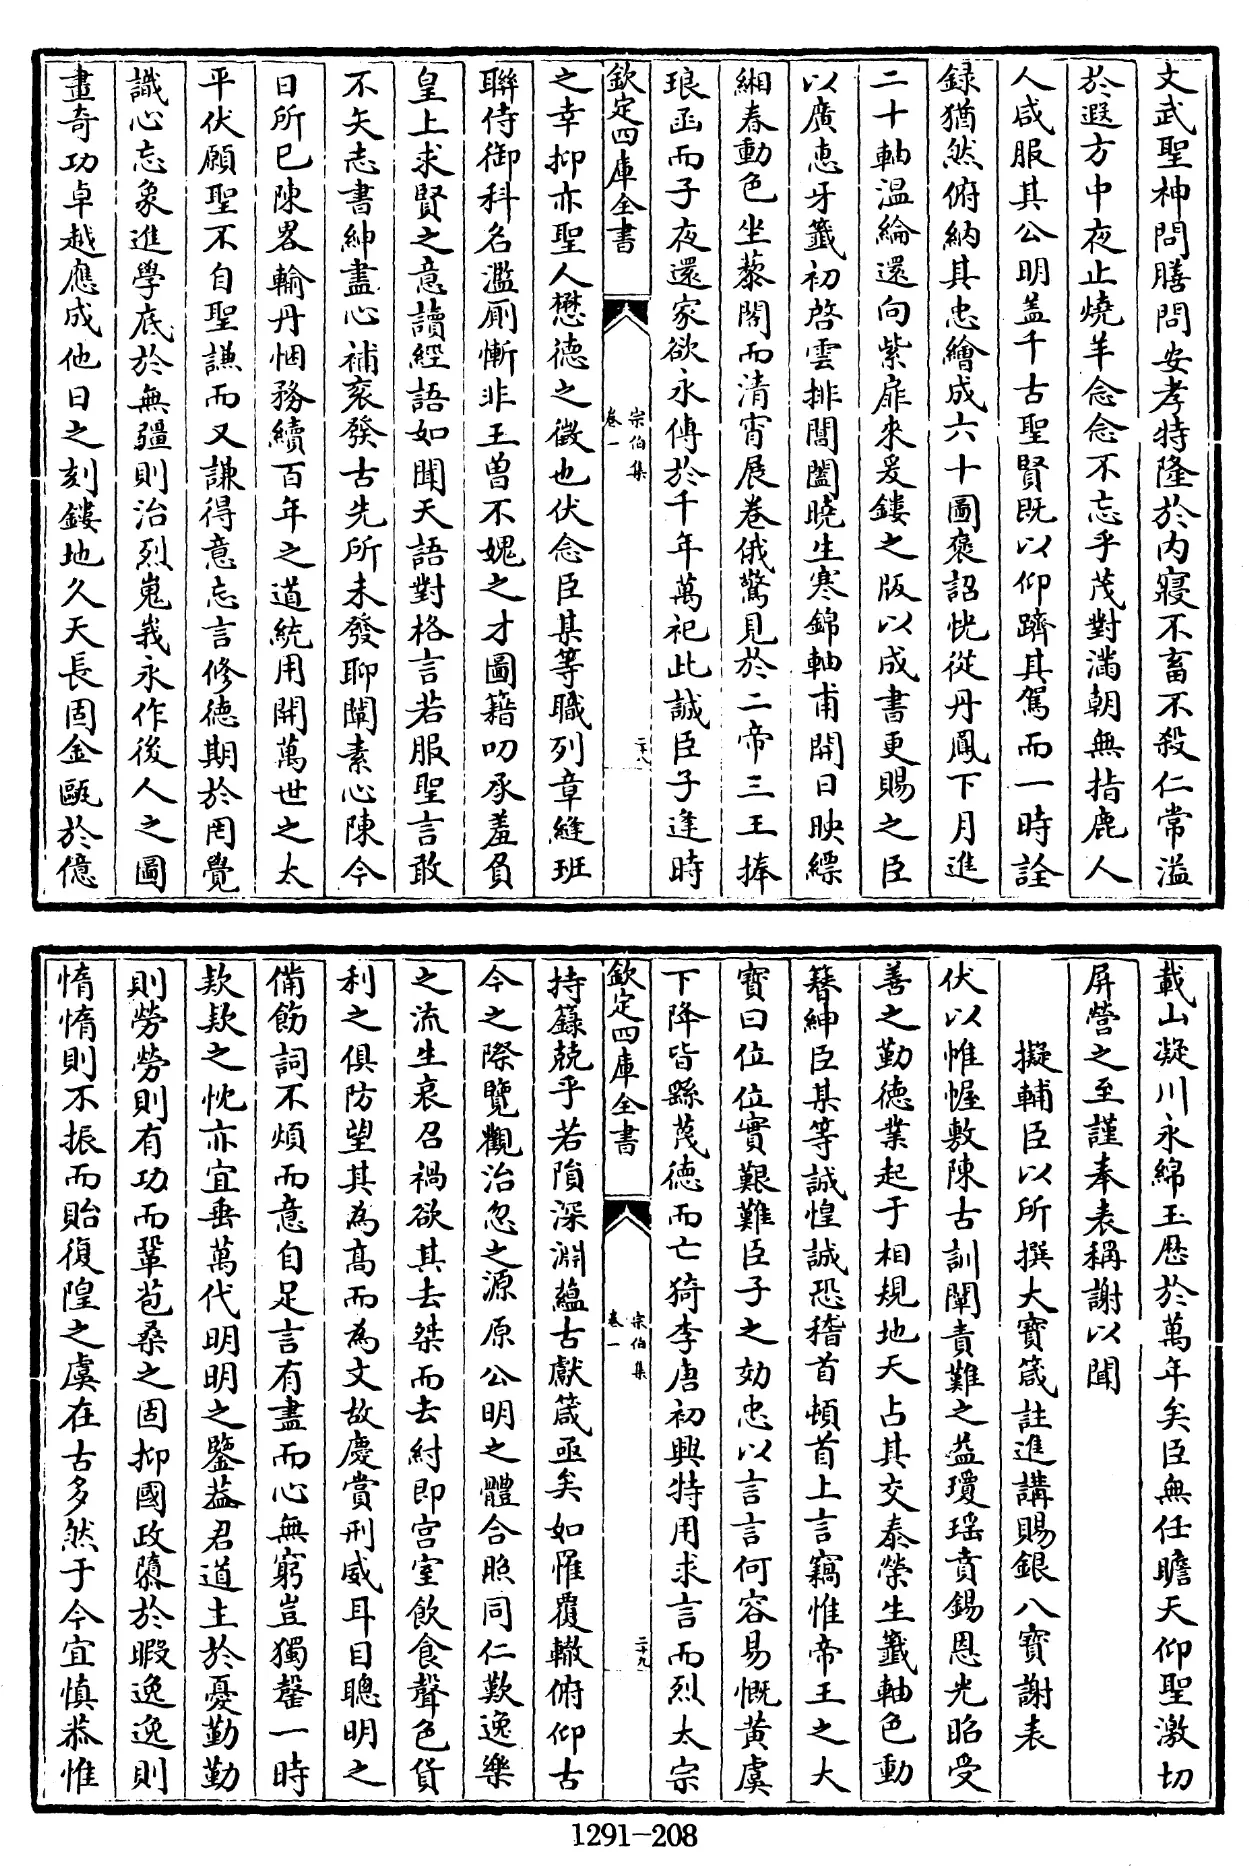 文武聖神問膳問安孝特隆於内寢不畜不殺仁常溢
於遐方中夜止燒羊念念不忘乎茂對滿朝無指鹿人
人咸服其公明盖千古聖賢既以仰躋其駕而一時詮
録猶然俯納其忠繪成六十圖褒詔怳從丹鳳下月進
二十軸温綸還向紫扉來爰鏤之版以成書更賜之臣
以廣惠牙籤初啓雲排閶闔曉生寒錦軸甫開日映縹
緗春動色坐藜閣而清宵展卷俄驚見於二帝三王捧
琅函而子夜還家欲永傳於千年萬祀此誠臣子逢時
欽定四庫全書
宗伯集
卷一
二十八
之幸抑亦聖人懋德之徵也伏念臣某等職列章縫班
聯侍御科名濫厠慚非王曾不媿之才圖籍叨承羞負
皇上求賢之意讀經語如聞天語對格言若服聖言敢
不矢志書紳盡心補衮發古先所未發聊闡素心陳今
日所已陳畧輸丹悃務續百年之道統用開萬世之太
平伏願聖不自聖謙而又謙得意忘言修德期於罔覺
識心忘象進學底於無疆則治烈嵬峩永作後人之圖
畫奇功卓越應成他日之刻鏤地久天長固金甌於億
載山凝川永綿玉歷於萬年矣臣無任瞻天仰聖激切
屏營之至謹奉表稱謝以聞
擬輔臣以所撰大寶箴註進講賜銀八寶謝表
伏以帷幄敷陳古訓闡責難之益瓊瑶賁錫恩光昭受
善之勤德業起于相規地天占其交泰榮生籤軸色動
簪紳臣某等誠惶誠恐稽首頓首上言竊惟帝王之大
寶曰位位實艱難臣子之効忠以言言何容易慨黄虞
下降皆繇蔑德而亡猗李唐初興特用求言而烈太宗
欽定四庫全書
宗伯集
卷一
二十九
持籙兢乎若隕深淵蘊古獻箴亟矣如罹覆轍俯仰古
今之際覽觀治忽之源原公明之體合照同仁歎逸樂
之流生哀召禍欲其去桀而去紂即宫室飲食聲色貨
利之俱防望其為髙而為文故慶賞刑威耳目聰明之
備飭詞不煩而意自足言有盡而心無窮豈獨罄一時
欵欵之忱亦宜垂萬代明明之鑒葢君道主於憂勤勤
則勞勞則有功而鞏苞桑之固抑國政隳於暇逸逸則
惰惰則不振而貽復隍之虞在古多然于今宜慎恭惟
1291—208